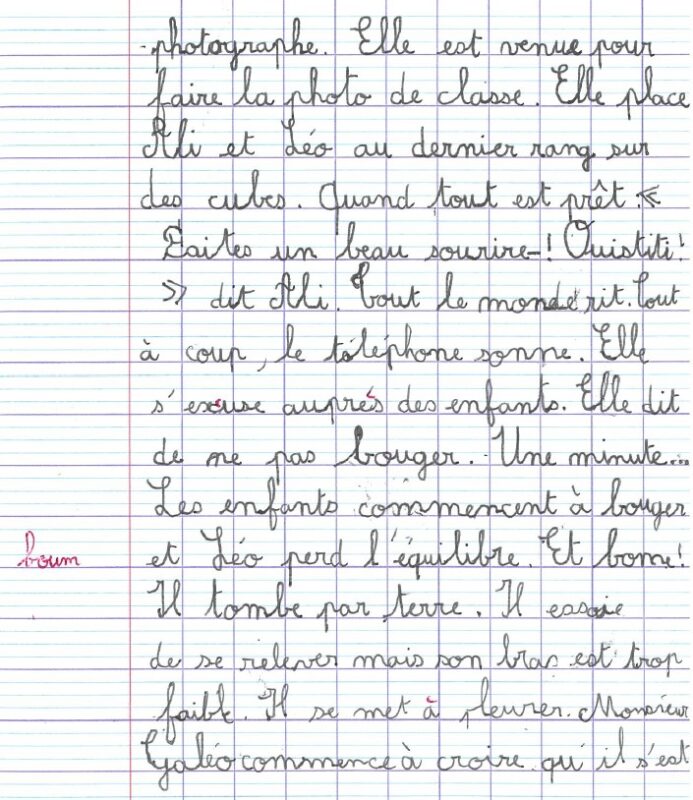 photographe. Elle est venue pour
faire la photo de classe. Elle place
Ali et Léo au dernier rang sur
des cubes. Quand tout est prêt : «
Faites un beau sourire ! Ouistiti !
» dit Ali. Tout le monde rit. Tout
à coup, le téléphone sonne. Elle
s'excuse auprès des enfants. Elle dit
de ne pas bouger. Une minute...
Les enfants commencent à bouger
boum et Léo perd l'équilibre. Et bome !
Il tombe par terre. Il essaie
de se relever mais son bras est trop
faible. Il se met à pleurer. Monsieur
Galéo commence à croire qu'il s'est